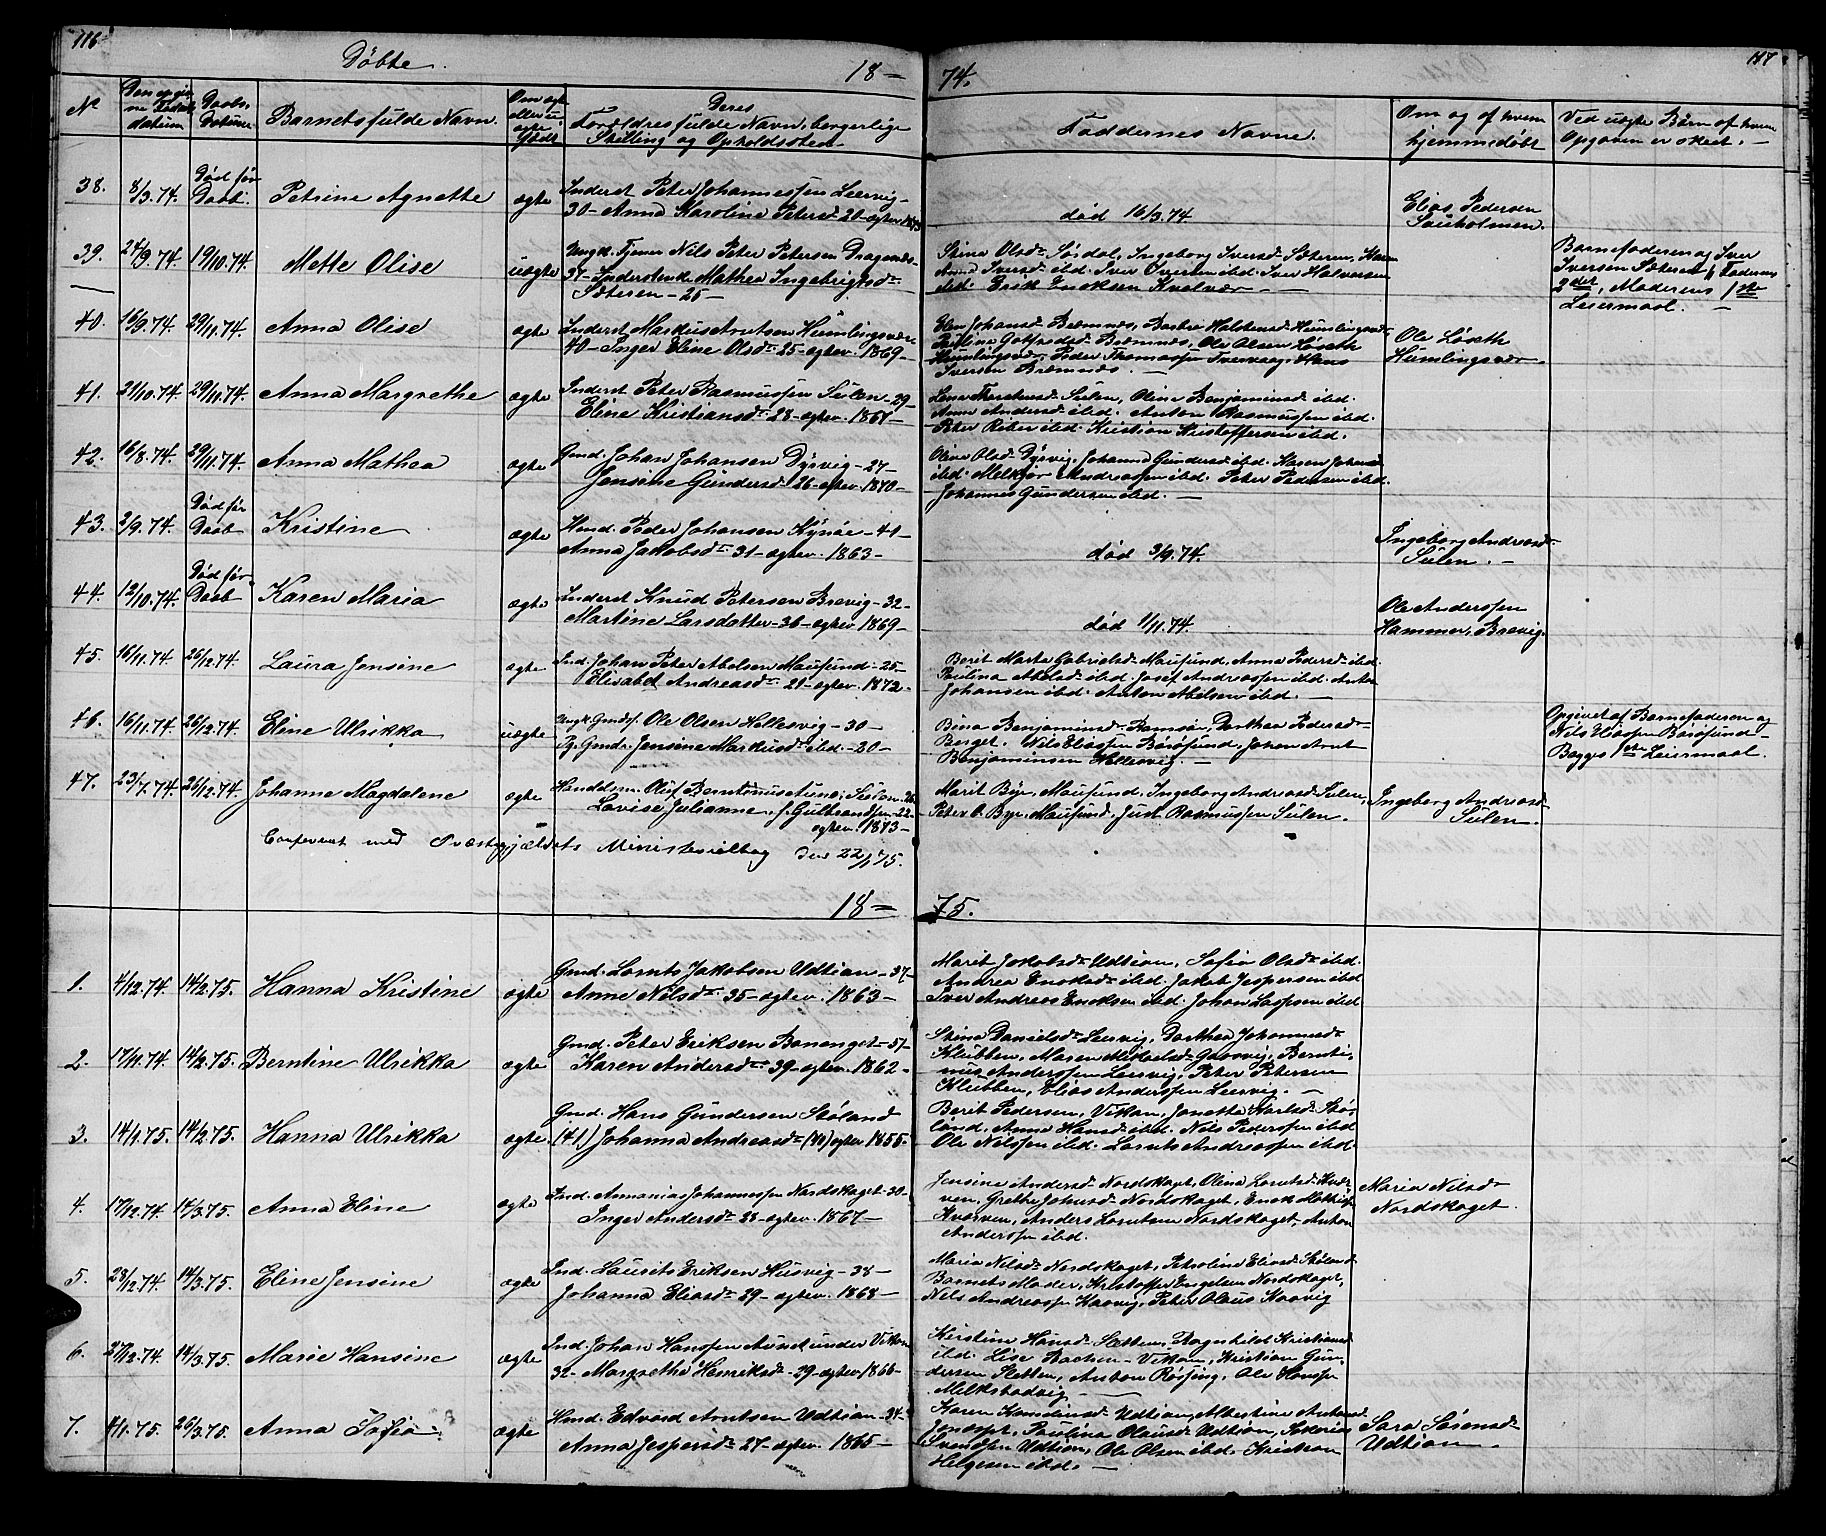 116
Døbte.
18-
74.
117
No
Den opgivne Fødselsdatum
Daabs-Datum
Barnets fulde Navn.
Om ægte eller uægte Født
Deres
Forældres fulde Navn, borgerlige
Stilling og Opholdssted.
Faddernes Navne.
Om og af hvem
hjemmedøbt
Ved uægte Børn af hvem
Opgaven er skeet. -
38. 8/3.74. Død før Daab. Petrine Agnette ægte Inderst Peter Johannessen Leervig-
30- Anna Karoline Petersd. 20-egtev. 1873
død 16/3.74
Elias Pedersen
39. 24/9.74. 19/10.74. Mette Olise uægte Ungk. Tjener Nils Peter Petersen Dragsnes-
37- Inderstenke Mathea Ingebrigtsd.
Sæteren-25-
Stina Olsd. Sørdal, Ingeborg Iversd. Sæteren, Karen
Anna Iversd. ibd. Iver Iversen ibd. Iver Halvorsen
ibd. Erik Enoksen Kvalvær
Barnefaderen og Iver
Iversen Sæteren, Faderens
2det, Moderens 1ste
Leiermaal. -
40. 16/9.74. 29/11.74. Anna Olise ægte Inderst Markus Arntsen Humlingsvær
40- Inger Eline Olsd. 25-egtev. 1869-
Elen Johansd. Bræmnes, Barbro Halstensd. Humlingsv.
Paulina Gotfredsd. Bræmnes, Ole Olsen Løseth
Humlingsvær. Peder Thomassen Tvervaag, Hans
Iversen Bræmnes. -
Ole Løseth
Humlingsvær
41. 21/10.74. 29/11.74. Anna Margrethe ægte Inderst Peter Rasmussen Sulen-29-
Eline Kristiansd. 28-egtev. 1867-
Sulen, Olina Benjaminsd. ibd.
Anna Andersd. ibd. Anton Rasmussen ibd.
Peter Reber ibd. Kristian Kristoffersen ibd.
42. 16/8.74. 29/11.74. Anna Mathea ægte Gmd. Johan Johansen Dyrvig-27-
Jensine Gundersd. 26-egtev. 1870-
Olina Olsd. Dyrvig, Johanna Gundersd. ibd. Karen Johansd.
ibd. Melkior Andreassen ibd. Peter Pedersen ibd.
Johannes Gundersen ibd. -
43. 2/9.74. Død før Daab Kristine ægte Hmd. Peder Johansen Kynøe-41-
Anna Jakobsd. 31-egtev. 1863-
død 3/9.74.
Ingeborg Andreasd.
Sulen. -
44. 12/10.74. Død før Daab Karen Maria ægte Inderst Knud Petersen Brevig-32-
Martine Larsdatter-36-egtev. 1869-
død 1/11.74.
Ole Anderssen
Hammer, Brevig.
45. 16/11.74. 26/12.74. Laura Jensine ægte Ind. Johan Peter Abelsen Mausund-25-
Elisabet Andreasd. 21-egtev. 1872-
Berit Marta Gabrielsd. Mausund, Anna Pedersd. ibd.
Paulina Abelsd. ibd. Josef Andreassen ibd. Anton
Johansen ibd. Anton Abelsen ibd. -
46. 16/11.74. 26/12.74. Eline Ulrikka uægte Ungk. Gmdsf. Ole Olsen Hallesvig-30-
Pg. Gmdr. Jensine Markusd. ibd. -20-
Bina Benjaminsd. Ramsøe, Dorthea Pedersd.
Berget. Nils Eliassen Børøsund. Johan Arnt
Benjaminsen Hallesvig. -
Opgivet af Barnefaderen og
Nils Eliassen Børøsund-
Begges 1ste Leiermaal.
47. 23/7.74. 26/12.74. Johanne Magdalene ægte Handelsm. Oluf Berntinusen Aune, Sulen-26-
Lovise Julianne f. Gulbrandsen-22-
egtev. 1873-
Marit Byr, Mausund, Ingeborg Andreasd. Sulen,
Peter O. Byr, Mausund. Just Rasmussen Sulen.
Ingeborg Andreasd.
Sulen.
Confereret med Præstegjældets Ministerialbog den 22/1 75.
18-
75.
1. 4/12.74. 14/2.75. Hanna Kristine ægte Gmd. Lornts Jakobsen Udtian-37-
Anne Nilsd. 35-egtev. 1863-
Marit Jakobsd. Udtian, Sofia Olsd. ibd.
Andrea Enoksd. ibd. Jakob Jespersen ibd.
Iver Andreas Enoksen ibd. Johan Jespsen ibd
2. 17/11.74. 14/2.75. Berntine Ulrikka ægte Gmd. Peter Eriksen Bananget-57-
Karen Andersd. 39-egtev. 1862-
Stina Danielsd. Leervig, Dorthea Johannesd.
Klubben, Maren Mikaelsd. Gaasvig, Bernti-
nus Anderssen Leervig, Peter Petersen
Klubben, Elias Anderssen Leervig. -
3. 14/1.75. 14/2.75. Hanna Ulrikka ægte Gmd. Hans Gundersen Støland
(41) Johanna Andreasd. (40) egtev 1855-
Berit Pedersen, Vikan, Jonetta Karlsd. Stø-
land, Anna Hansd. ibd. Nils Pederssen ibd
Ole Nilssen ibd. Lornts Andreassen ibd
4. 17/12.74. 14/3.75. Anna Eline ægte Ind. Annanias Johannessen Nordskaget-30-
Inger Andersd. 28-egtev. 1867-
Jensine Andersd. Nordskaget, Olina Lorntsd. Kvær-
ven, Grethe Johnsd. Nordskaget, Enok
Kværven, Anders Lorntsen Nordskaget, Anton
Anderssen ibd.
Maria Nilsd.
Nordskaget.
5. 28/12.74. 14/3.75. Eline Jensine ægte Ind. Laurits Eriksen Husvig-38-
Johanna Eliasd. 29-egtev. 1868-
Maria Nilsd. Nordskaget, Petroline Eliasd. Støland
Barnets Moder, Kristoffer Engelsen Nordskaget,
Nils Andreassen Kaavig, Peter Olaus Kaavig
6. 27/12.74. 14/3.75. Marie Hansine ægte Ind. Johan Hanssen Aunet under Vikan
32- Margrethe Henriksd. 29-egtev. 1866-
Kirstine Hansd. Sletten, Ragnhild Kristiansd.
ibd. Lise Bachen-Vikan, Kristian Gun-
dersen Sletten, Anton Røssing, Ole Hanssen
Melkstadvig
7. 4/1.75. 26/3.75. Anna Sofie ægte Hmd. Edvard Arntsen Udtian-34-
Anna Jespersd. 27-egtev. 1865-
Karen Udtian, Albertine Antonsd.
Paulina Olausd. Udtian, Sakarias
Svendsen Udtian, Ole Olsen ibd. Kristian
Helgesen ibd. -
Sara Sørensd.
Udtian.